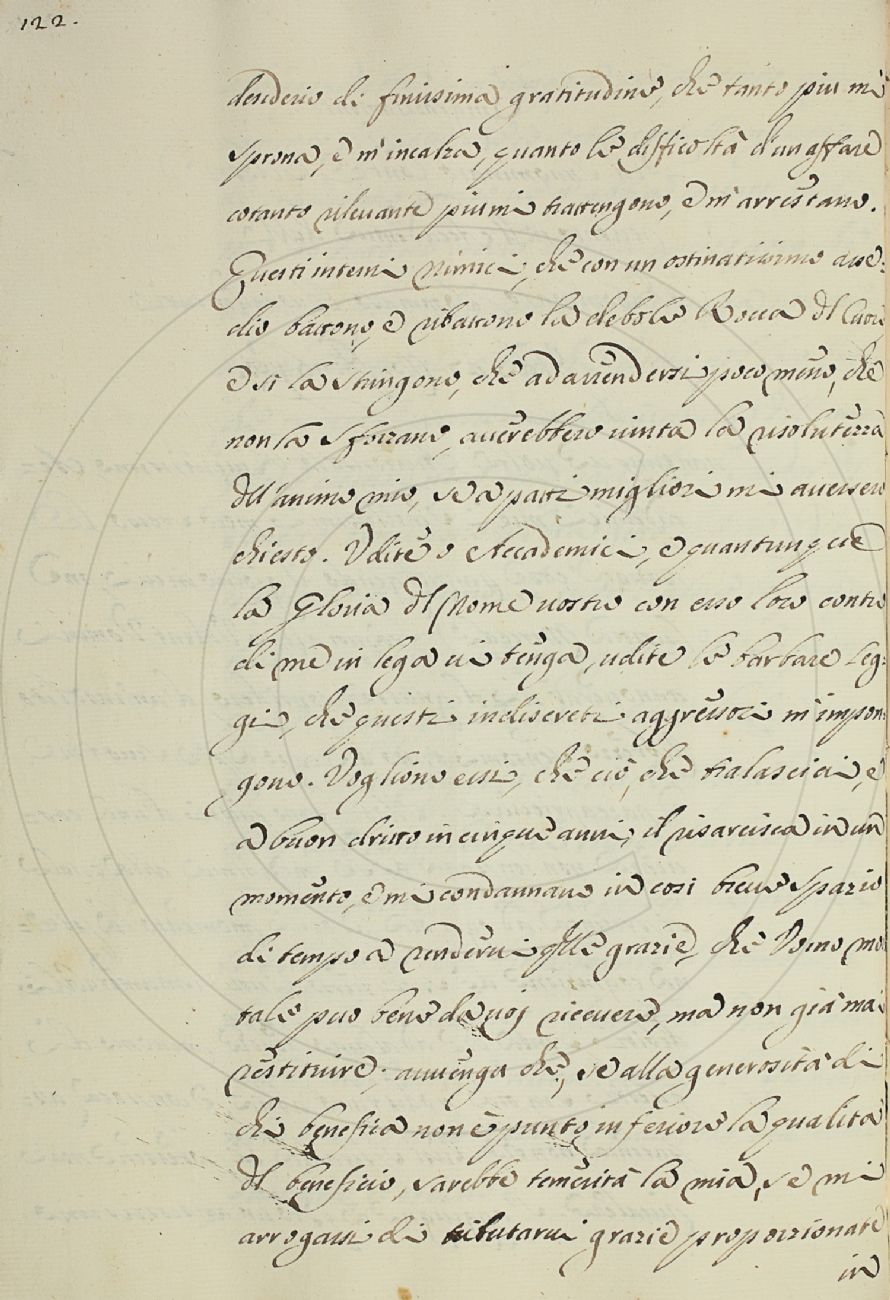 122.
desiderio di finissima gratitudine, che tanto più mi
sprona, e m'incalza, quanto le difficoltà d'un affare
cotanto rilevante più mi trattengono, e m'arrestano.
Questi interni nimici, che con un ostinatissimo asse:
dio battono, e ribattono la debole Rocca dl Cuore
e sì la stringono, che ad arrendersi poco meno, che
non la sforzano, averebbero vinta la risolutezza
dll'animo mio, se a patti migliori mi avessero
chiesto. Udite o Accademici, e quantunque
la Gloria dl Nome vostro con esso loro contro
di me in lega vi tenga, udite le barbare leg:
gi, che questi indiscreti aggressori m'impon:
gono. Vogliono essi, che ciò, che tralasciai, e
a buon dritto in cinque anni, il risarcisca in un
momento, e mi condannano in così breve spazio
di tempo a rendervi qlle grazie, che Uomo mor
tale può bene da voj ricevere, ma non già mai
restituire; avvenga che, se alla generosità di
chi benefica non è punto inferiore la qualità
dl beneficio, sarebbe temerità la mia, se mi
arrogassi di tributarvi grazie proporzionate
in